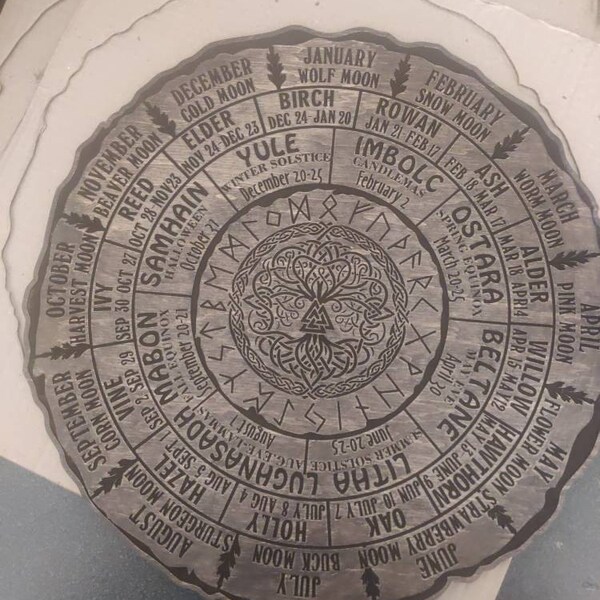 JANUARY
WOLF MOON
FEBRUARY
SNOW MOON
MARCH
WORM MOON
APRIL
PINK MOON
MAY
FLOWER MOON
JUNE
STRAWBERRY MOON
JULY
BUCK MOON
AUGUST
STURGEON MOON
SEPTEMBER
CORN MOON
OCTOBER
HARVEST MOON
NOVEMBER
BEAVER MOON
DECEMBER
COLD MOON
BIRCH
DEC 24 - JAN 20
ROWAN
JAN 21 FEB 17
ASH
FEB 18 MAR 17
ALDER
MAR 18 APR 4
WILLOW
APR 15 MAY 12
HAWTHORN
MAY 13 JUNE 9
OAK
JUN 10 JULY 7
HOLLY
JULY 8 AUG 4
HAZEL
AUG 5 SEPT 1
VINE
SEP 2 SEP 29
IVY
SEP 30 OCT 27
REED
OCT 28 NOV 23
ELDER
NOV 24 DEC 23
YULE
WINTER SOLSTICE
December 20-25
IMBOLC
CANDLEMAS
February 2
OSTARA
SPRING EQUINOX
March 20-25
BELTANE
MAY EVE
April 30
LITHA
SUMMER SOLSTICE
June 20-25
LUGHNASADA
AUG. EVE LAMMAS
August 1
MABON
FALL EQUINOX
September 20-21
SAMHAIN
HALLOWEEN
October 21